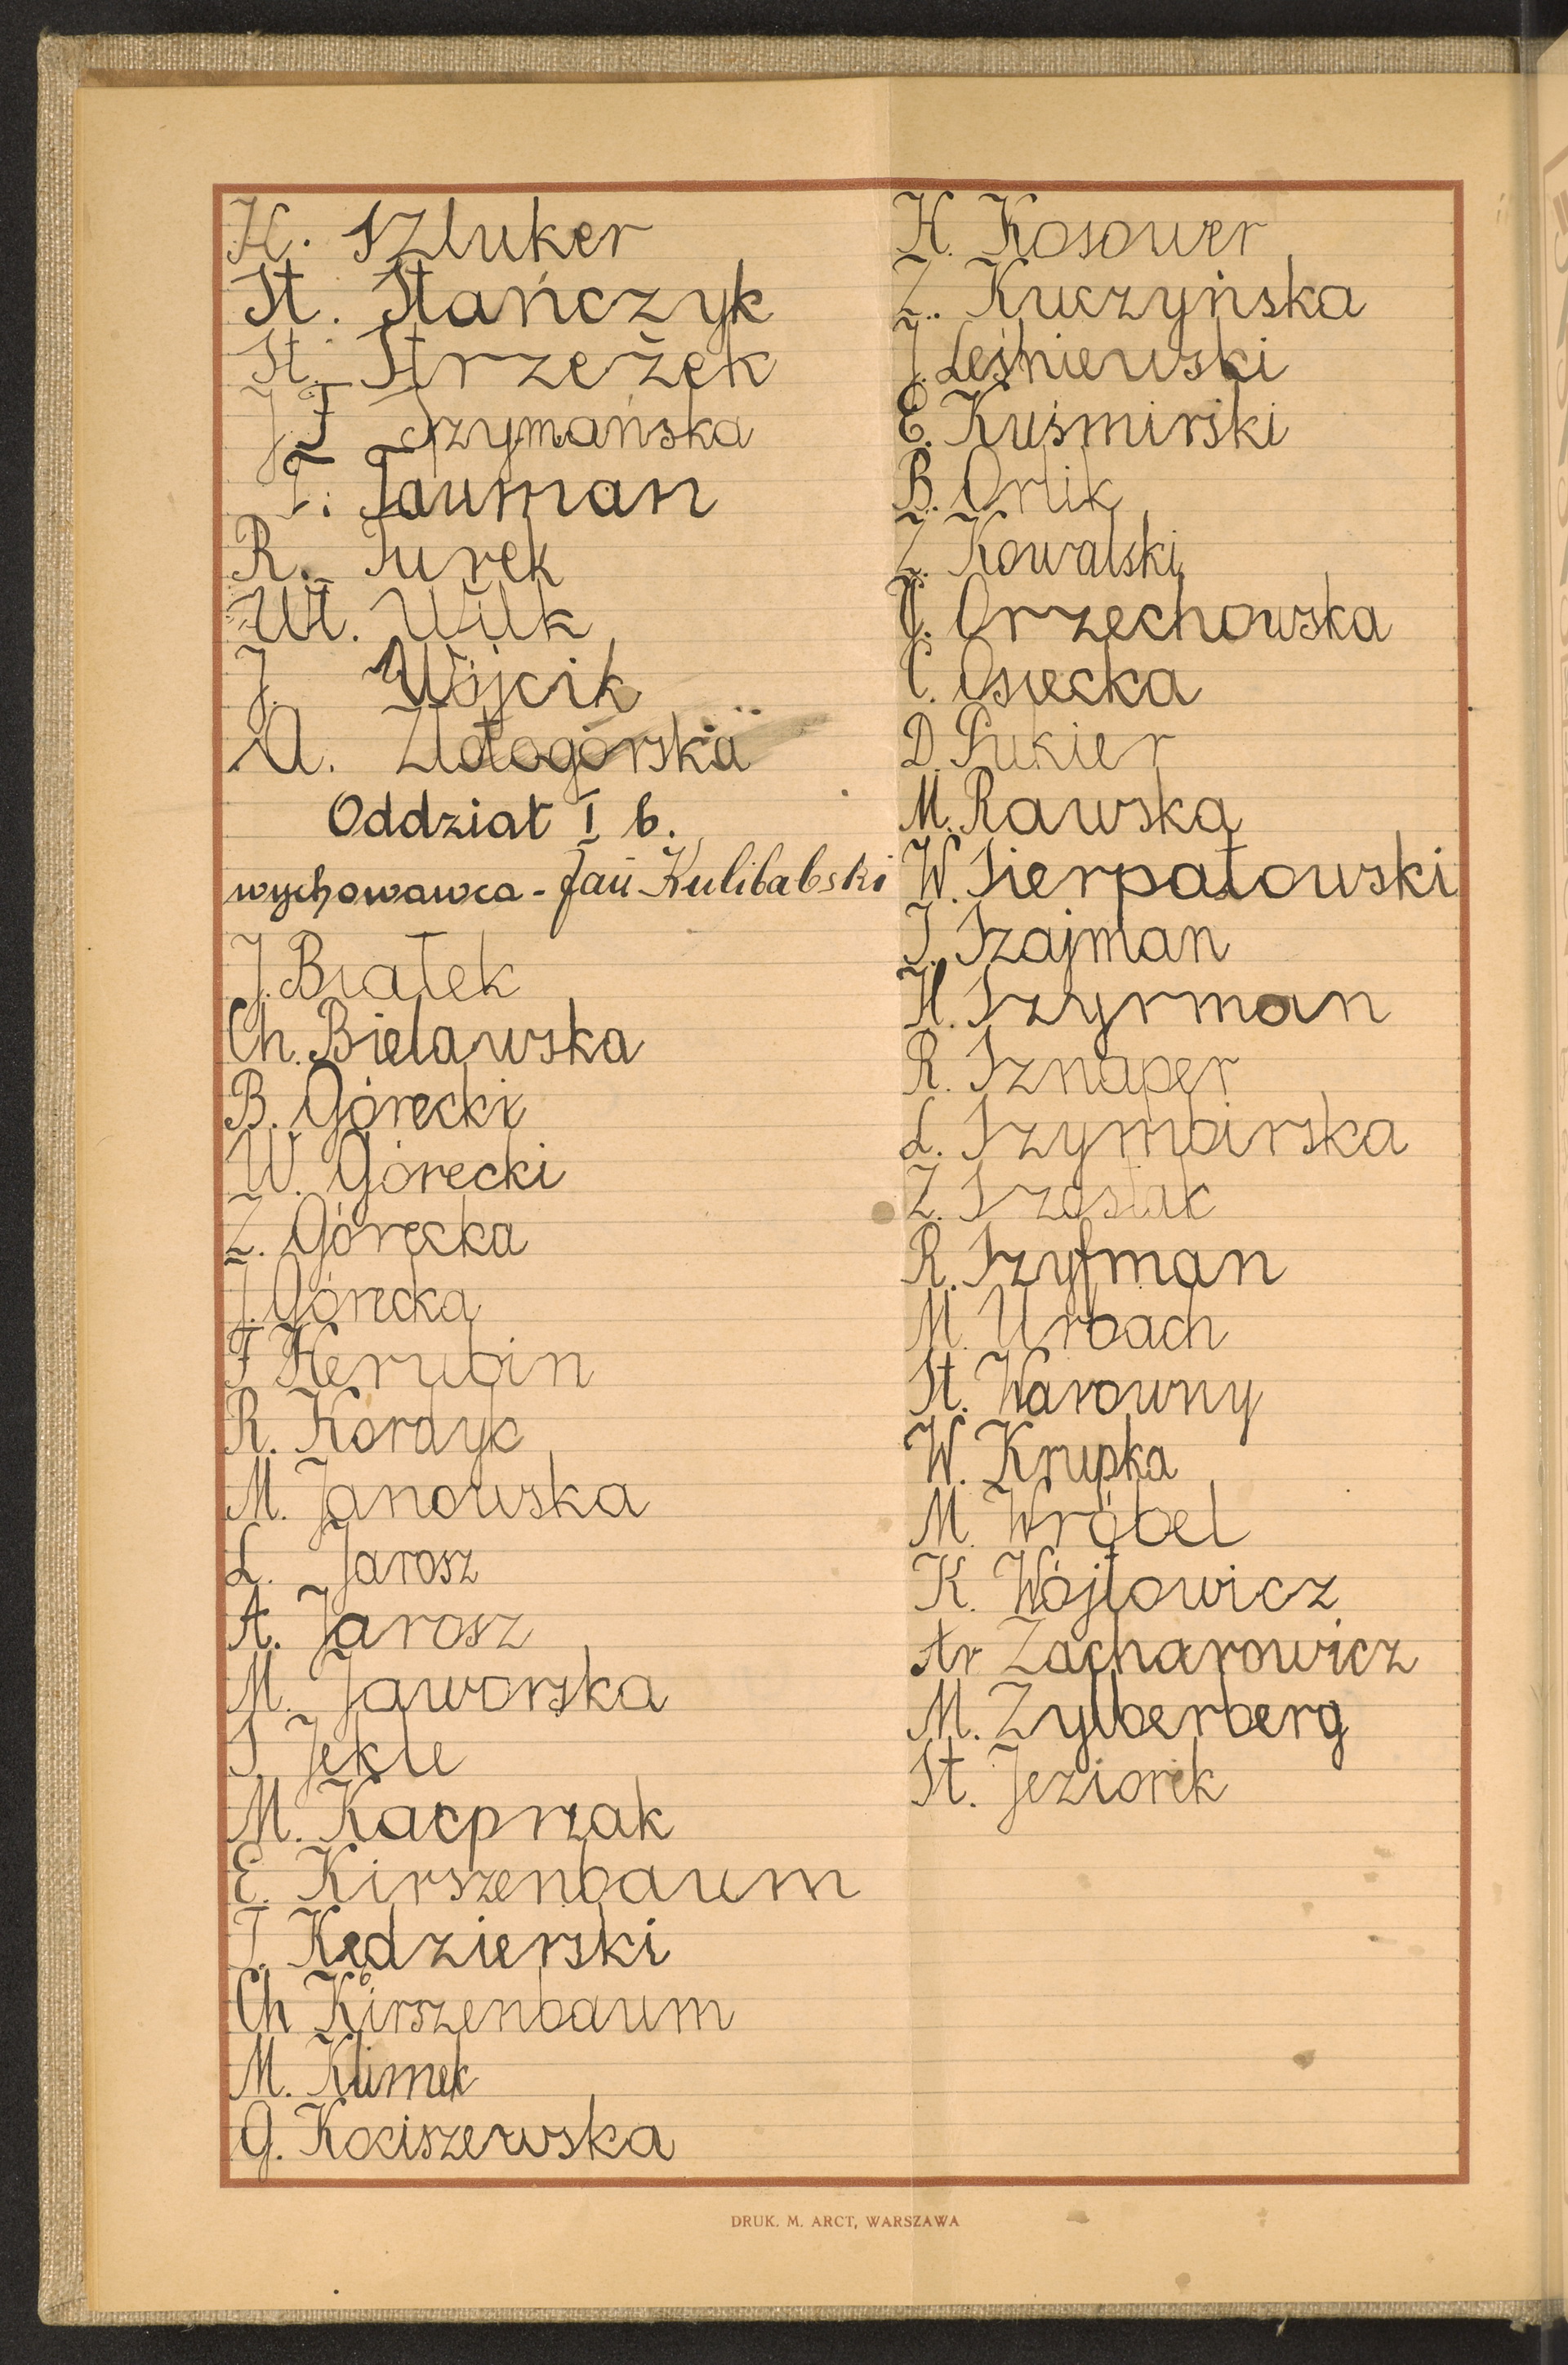 H. Szluker
St. Stańczyk
St. Strzeżek
J. Szymańska
T. Tauman
R. Turek
Wł. Wilk
J. Wójcik
A. Złotogórska
Oddział I b.
wychowawca - Jan Kulibabski
J. Białek
Ch. Bielawska
B. Górecki
W. Górecki
Z. Górecka
J. Górecka
F Herubin
R. Kordyk
M. Janowska
L. Jarosz
A. Jarosz
M. Jaworska
S. Jekle
M. Kacprzak
E. Kirszenbaum
T. Kędzierski
Ch Kirszenbaum
M. Klimek
G. Kociszewska
H. Kosower
Z. Kuczyńska
J. Leśniewski
E. Kuśmirski
B. Orlik
Z. Kowalski
J. Orzechowska
C. Osiecka
D. Pukier
M. Rawska
W. Sierpatowski
I. Szajman
H. Szyrman
R. Sznaper
L. Szymbarska
Z. Szostak
R. Szyfman
M. Urbach
St. Warowny
W. Krupka
M. Wróbel
K. Wójtowicz
Ar Zacharowicz
M. Zylberberg
St. Jeziorek
DRUK. M. ARCT, WARSZAWA